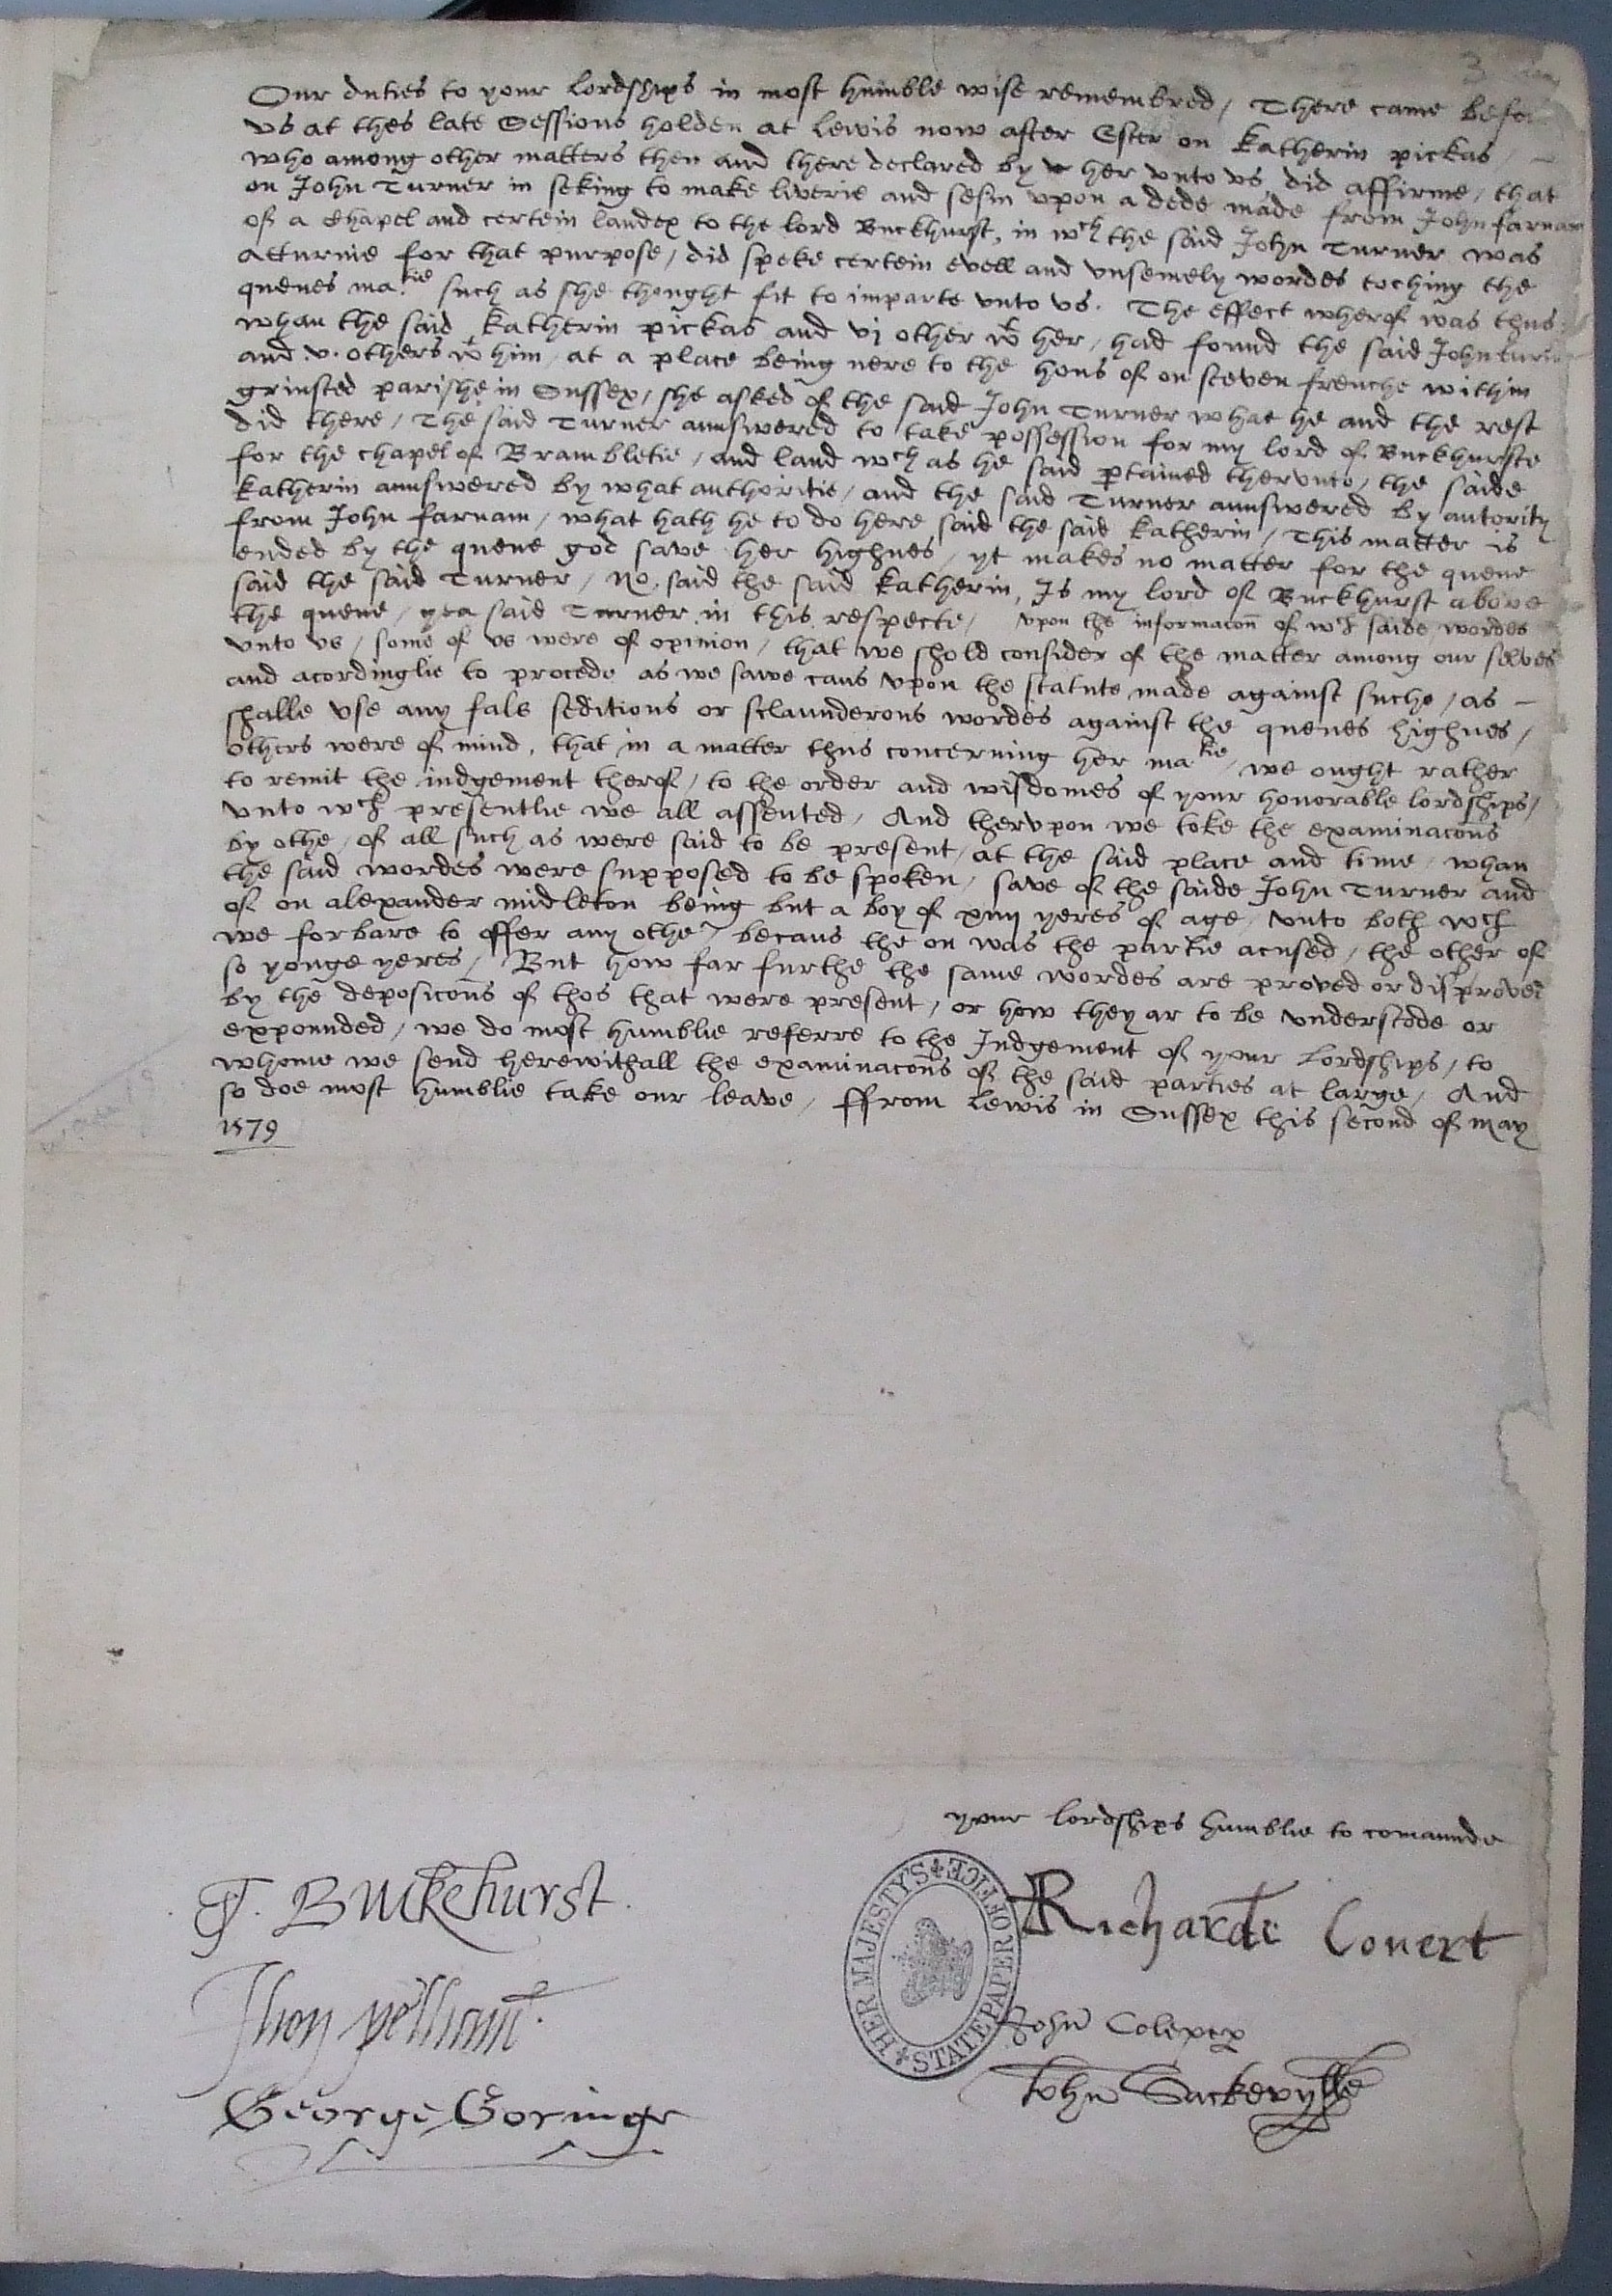 3
Our duties to your Lordships in most humble wise remembred / There came befor
vs at thes late Sessions holden at Lewis now after Ester on Katherin pickas /
who among other matters then and there declared by her vnto vs, did affirme / that
on John Turner in seking to make liverie and sesin vpon a dede made from John farnam
of a Chapel and certein landes to the lord Buckhurst, in wch the said John Turner was
Atturnie for that purpose / did speke certein evell and vnsemely wordes toching the
quenes matie such as she thought fit to imparte vnto vs. The effect wherof was thus
whan the said Katherin pickas and vj other wt her / had found the said John turner
and v. others wt him / at a place being nere to the hous of on steven frenche within
grinsted parishe in Sussex / she asked of the said John Turner what he and the rest
did there / The said Turner aunswered to take possession for my lord of Buckhurste
for the chapel of Brambletie / and land wch as he said ptained thervnto / the saide
Katherin aunswered by what authoritie / and the said Turner aunswered by autority
from John farnam / what hath he to do here said the said Katherin / This matter is
ended by the quene god save her highnes / yt makes no matter for the quene
said the said Turner / No, said the said Katherin, Is my lord of Buckhurst above
the quene / yea said Turner in this respecte / vpon the informacon of wch saide wordes
vnto vs / some of vs were of opinion / that we shold consider of the matter among our selves
and acordinglie to procede as we sawe caus vpon the statute made against suche / as
shalle vse any fals seditious or sclaunderous wordes against the quenes highnes /
others were of mind, that in a matter thus concerning her matie / we ought rather
to remit the iudgement therof / to the order and wisdomes of your honorable lordships /
vnto wch presentlie we all assented / And thervpon we toke the examinacons
by othe / of all such as were said to be present / at the said place and time / whan
the said wordes were supposed to be spoken / save of the saide John Turner and
of on alexander midleton being but a boy of xiiij yeres of age / vnto both wch
we forbare to offer any othe / becaus the on was the partie acused / the other of
so yonge yeres / But how far furthe the same wordes are proved or disproved
by the deposicons of thos that were present / or how they ar to be vnderstode or
expounded / we do most humblie referre to the Iudgement of your Lordships / to
whome we send herewithall the examinacons of the said parties at large / And
so doe most humblie take our leave / ffrom Lewis in Sussex this second of may
1579
your lordships humblie to comaunde
T. Buckehurst
Richarde Covert
Jhon pelham
John Colepep
George Goringe
John Sackevylle
HER MAJESTY'S STATE PAPER OFFICE